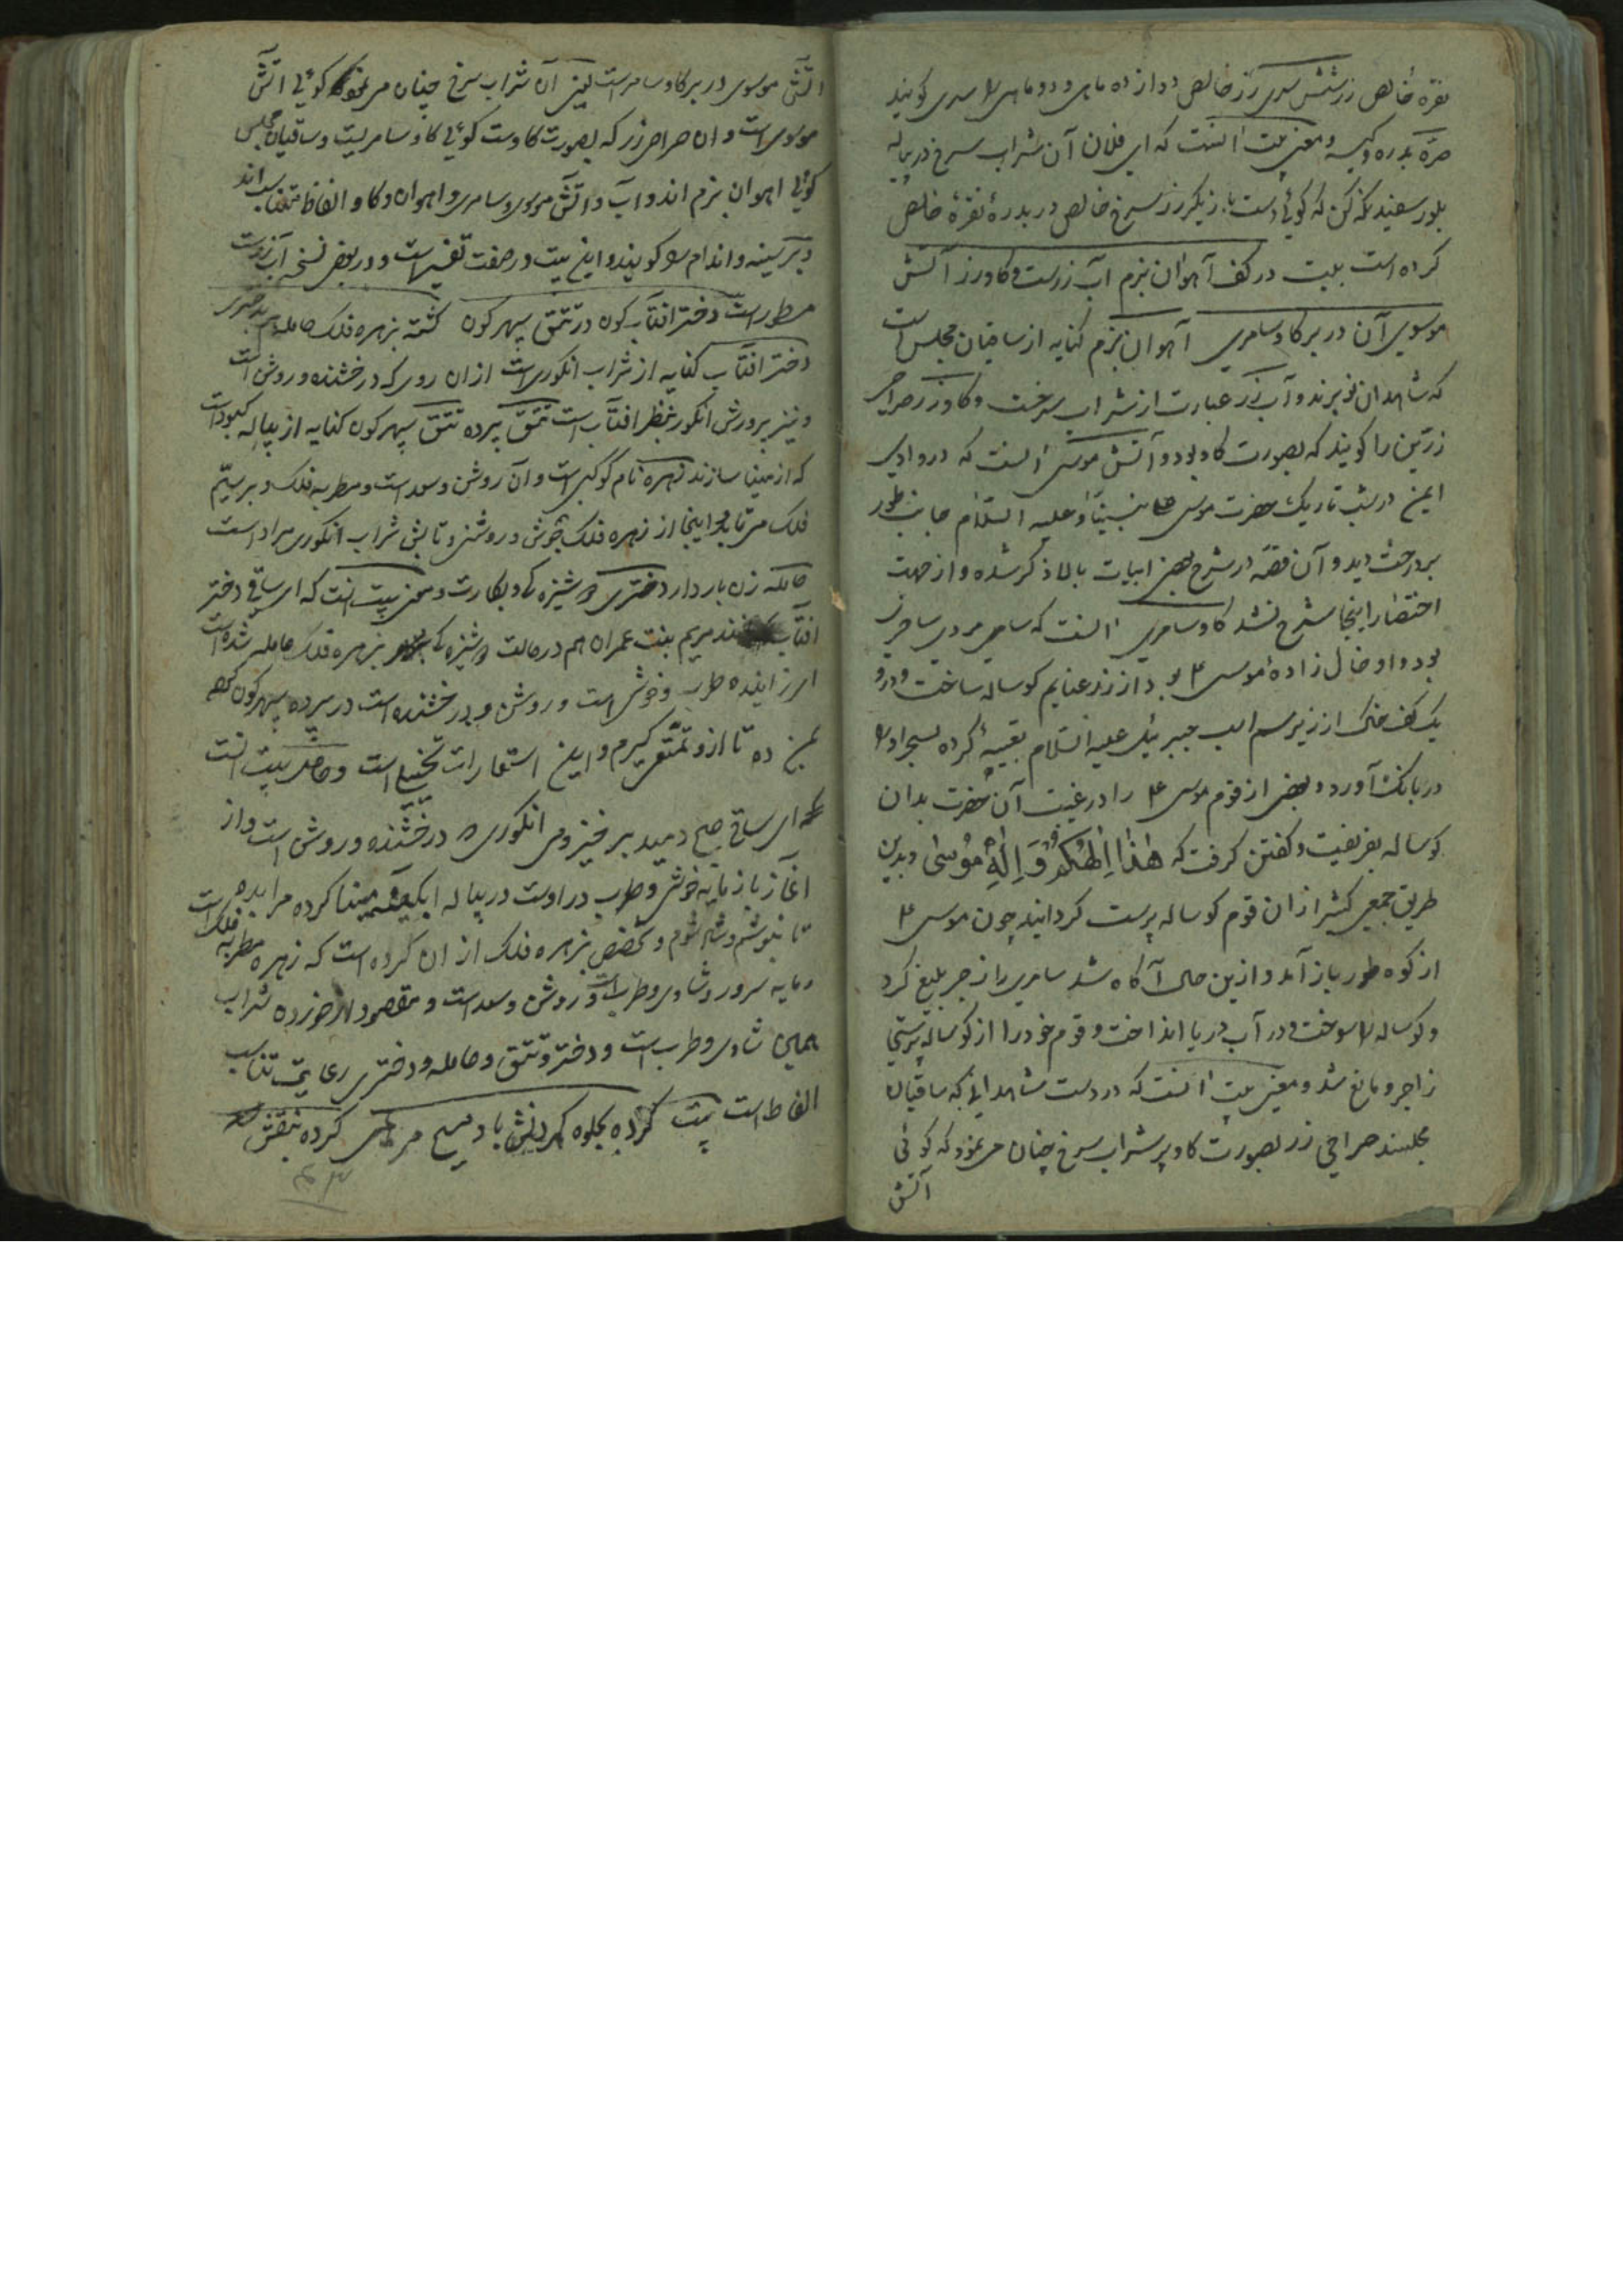 نقره خالص زر شش سری زر خالص دوازده ماهی و ده ماهی را سری کویند
صرّه بدره و کیسه و معنی بیت انست که ای فلان آن شراب سرخ در پیاله
بلور سفید نکه کن که کوئی دست بازیکر زر سرخ خالص در بدرهٔ نقرهٔ خالص
کرده است بیت در کف آهوان بزم آب زرست و کاو زر آتش
موسوی آن در بر کاو سامری آهوان بزم کنایه از ساقیان مجلس است
که شاهدان و آب زر عبارت از شراب سرخست و کاو زر صراحی
زرین را کویند که بصورت کاو بود و آتش موسی انست که در وادی
ایمن در شب تاریک حضرت موسی علی نبینا و علیه السّلام جانب طور
بر درخت دید و آن قصّه در شرح بعضی ابیات بالا ذکر شده و از جهت
اختصار اینجا شرح نشد کاو سامری انست که سامری مردی ساحر
بود و او خال زادهٔ موسی ع بود از زر غنایم کوساله ساخت و درو
یک کف خاک از زیر سم اسب جبرئیل علیه السّلام تعبیه کرده بسحر او را
در بانک آورد و بعضی از قوم موسی ع را در غیبت آن حضرت بدان
کوساله بفریفت و کفتن کرفت که هٰذَا اِلٰهُکُمْ وَ اِلٰهُ مُوْسٰی و بدین
طریق جمعی کثیر از ان قوم کوساله پرست کردانید چون موسی ع
از کوه طور باز آمد و ازین حال آکاه شد سامری را زجر بلیغ کرد
و کوساله را سوخت و در آب دریا انداخت و قوم خود را از کوساله پرستی
زاجر و مانع شد و معنی بیت انست که در دست شاهدانی که ساقیان
مجلسند صراحی زر بصورت کاو پر شراب سرخ چنان می نمود که کوئی
آتش
اتش موسوی در بر کاو سامریست یعنی آن شراب سرخ چنان می نمود کوئی اتش
موسوی است و ان صراحی زر که بصورت کاوست کوئی کاو سامریست و ساقیان مجلس
کوئی اهوان بزم اند و آب و اتش و موسوی و سامری و اهوان و کاو الفاظ متناسب اند
و بر سینه و اندام را کویند و این بیت در صفت است و در بعض نسخه آب زرست
مسطور است دختر افتاب کون در تتق سپهر کون کشته بزهره فلک حامله هم بدختری
دختر افتاب کنایه از شراب انکوری است از ان روی که درخشنده و روشن است
و نیز پرورش انکور بنظر افتاب است تتق پرده تتق سپهر کون کنایه از پیاله کبود است
که از مینا سازند زهره نام کوکبی است و آن روشن و سعد است و مطربه فلک و بر سیّم
فلک می تابد و اینجا از زهره فلک جوش و روشنی و تابش شراب انکوری مراد است
حامله زن باردار دختری دوشیزه کی و بکارت و معنی بیت انست که ای ساقی دختر
افتاب مریم بنت عمران هم در حالت دوشیزه کی بزهره فلک حامله شده است
ای زاینده طرب و خوش است و روشن و درخشنده است در پرده سپهر کون
بمن ده تا ازو تمتّع کیرم و این استعارات تخییلی است و حاصل بیت انست
که ای ساقی صبح دمید بر خیز و می انکوری را درخشنده و روشن است و از
آغاز باز مایه خوشی و طرب در اوست در پیاله ابکینه مینا کرده مرا بده
تا بنوشم و شاد شوم و تخصیص بزهره فلک از ان کرده است که زهره مطربه فلک است
و مایه سرور و شادی و طرب است و روشن و سعد است و مقصود از خوردن شراب
همین شادی و طرب است و دختر و تتق و حامله و دختری رعایت تناسب
الفاظ است بیت کرده بجلوه کردنش باد مسیح مریمی کرده بنقش